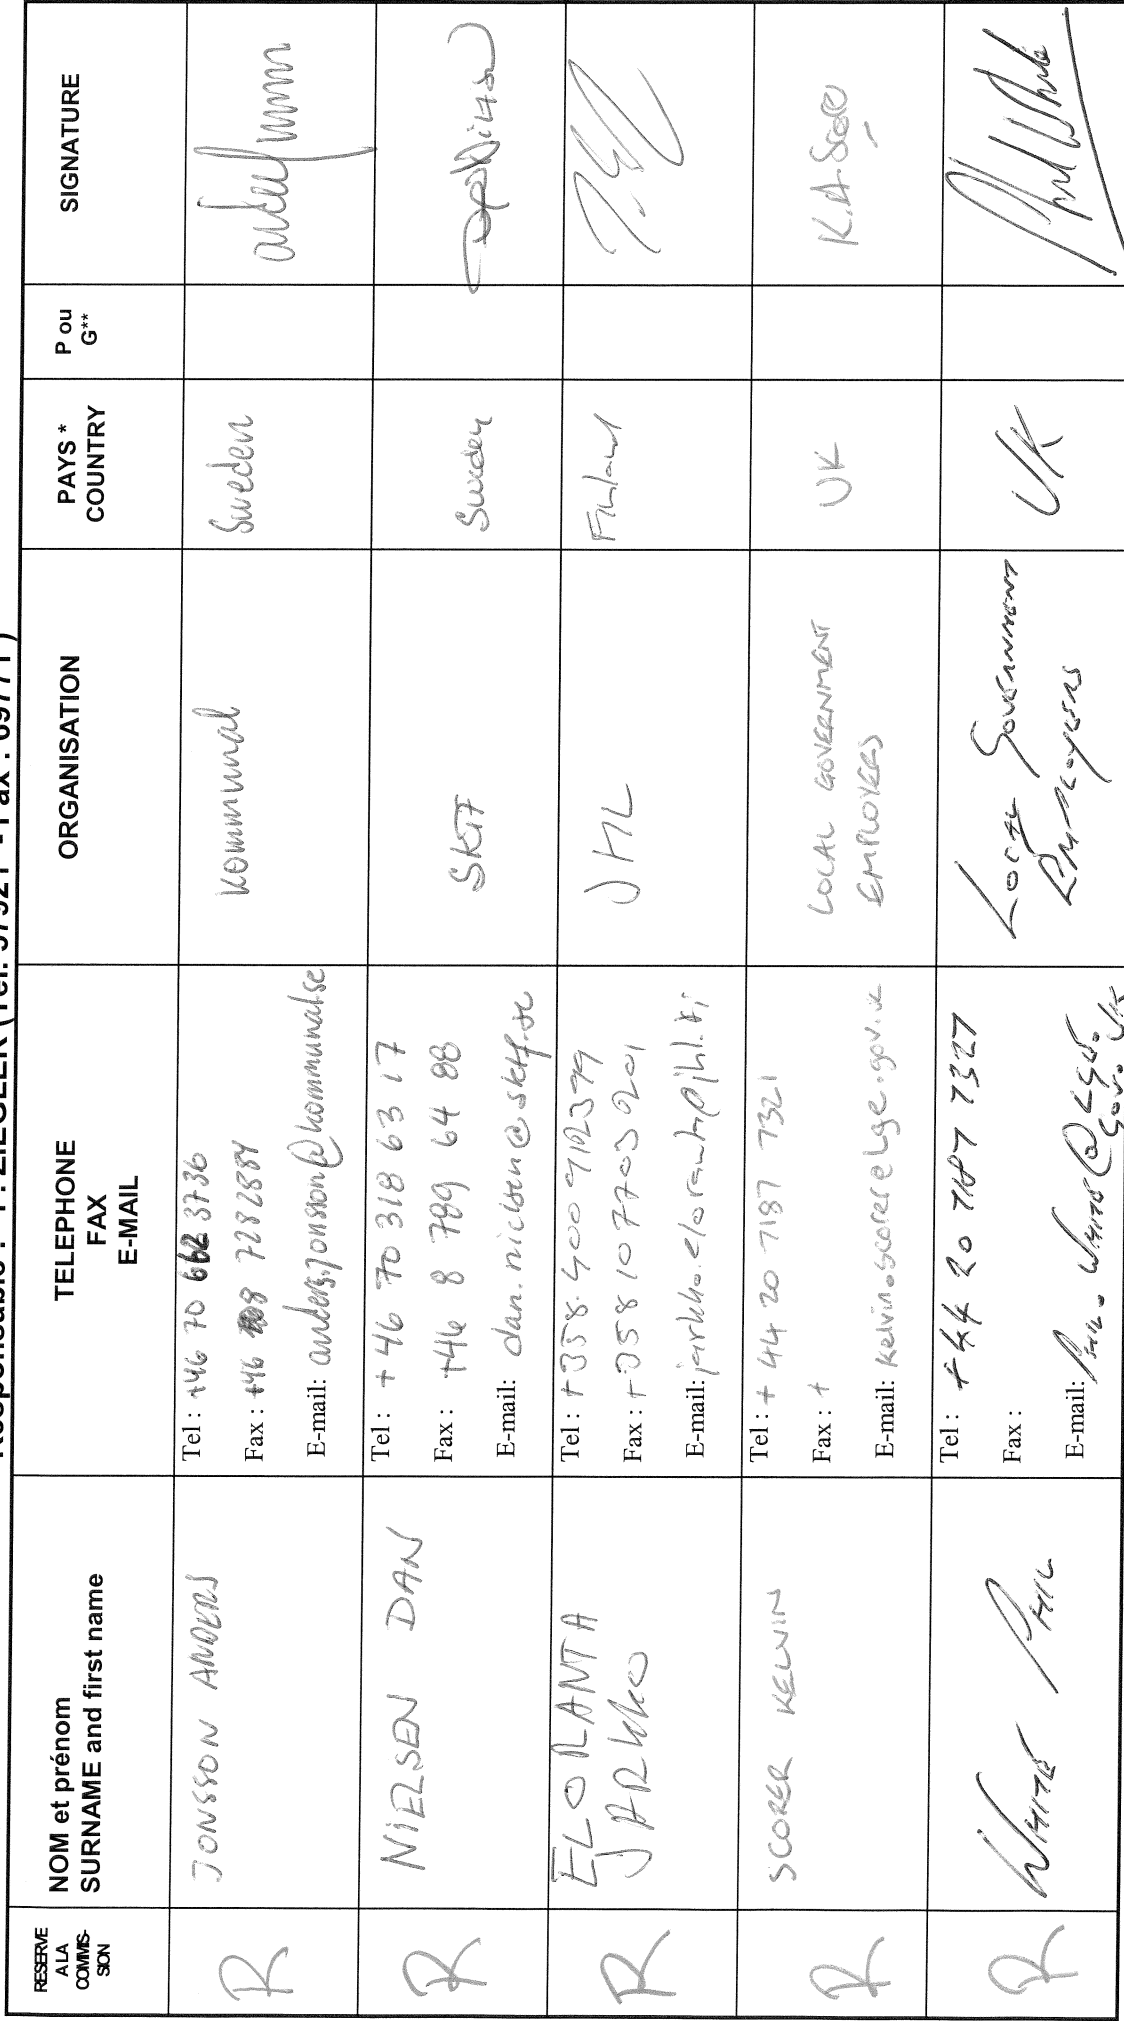 RESERVE
A LA
COMMIS-
SION
NOM et prénom
SURNAME and first name
TELEPHONE
FAX
E-MAIL
ORGANISATION
PAYS *
COUNTRY
P ou
G**
SIGNATURE
R
JONSSON ANDERS
Tel : +46 70 662 3736
Fax : +46 8 7282884
E-mail: anders.jonsson@kommunal.se
Kommunal
Sweden
R
NIELSEN DAN
Tel : +46 70 318 63 17
Fax : +46 8 789 64 88
E-mail: dan.nielsen@sktf.se
SKTF
Sweden
R
ELORANTA
JARKKO
Tel : +358 400 9712399
Fax : +358 10 7703 201
E-mail: jarkko.eloranta@jhl.fi
JHL
Finland
R
SCORER KELVIN
Tel : + 44 20 7187 7321
Fax : +
E-mail: kelvin.scorer@lge.gov.uk
LOCAL GOVERNMENT
EMPLOYERS
UK
K.A. Scorer
R
WHITE PHIL
Tel : +44 20 7187 7327
Fax :
E-mail: PHIL.WHITE@LGE.
GOV.UK
LOCAL GOVERNMENT
EMPLOYERS
UK
Phil White